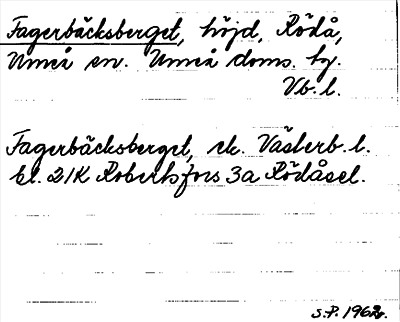 Fagerbäcksberget, höjd, Rödå,
Umeå sn. Umeå doms. hj.
Vb. l.
Fagerbäcksberget, ek. Västerb. l.
bl. 21K Robertsfors 3a Rödåsel.
S.P. 1962.